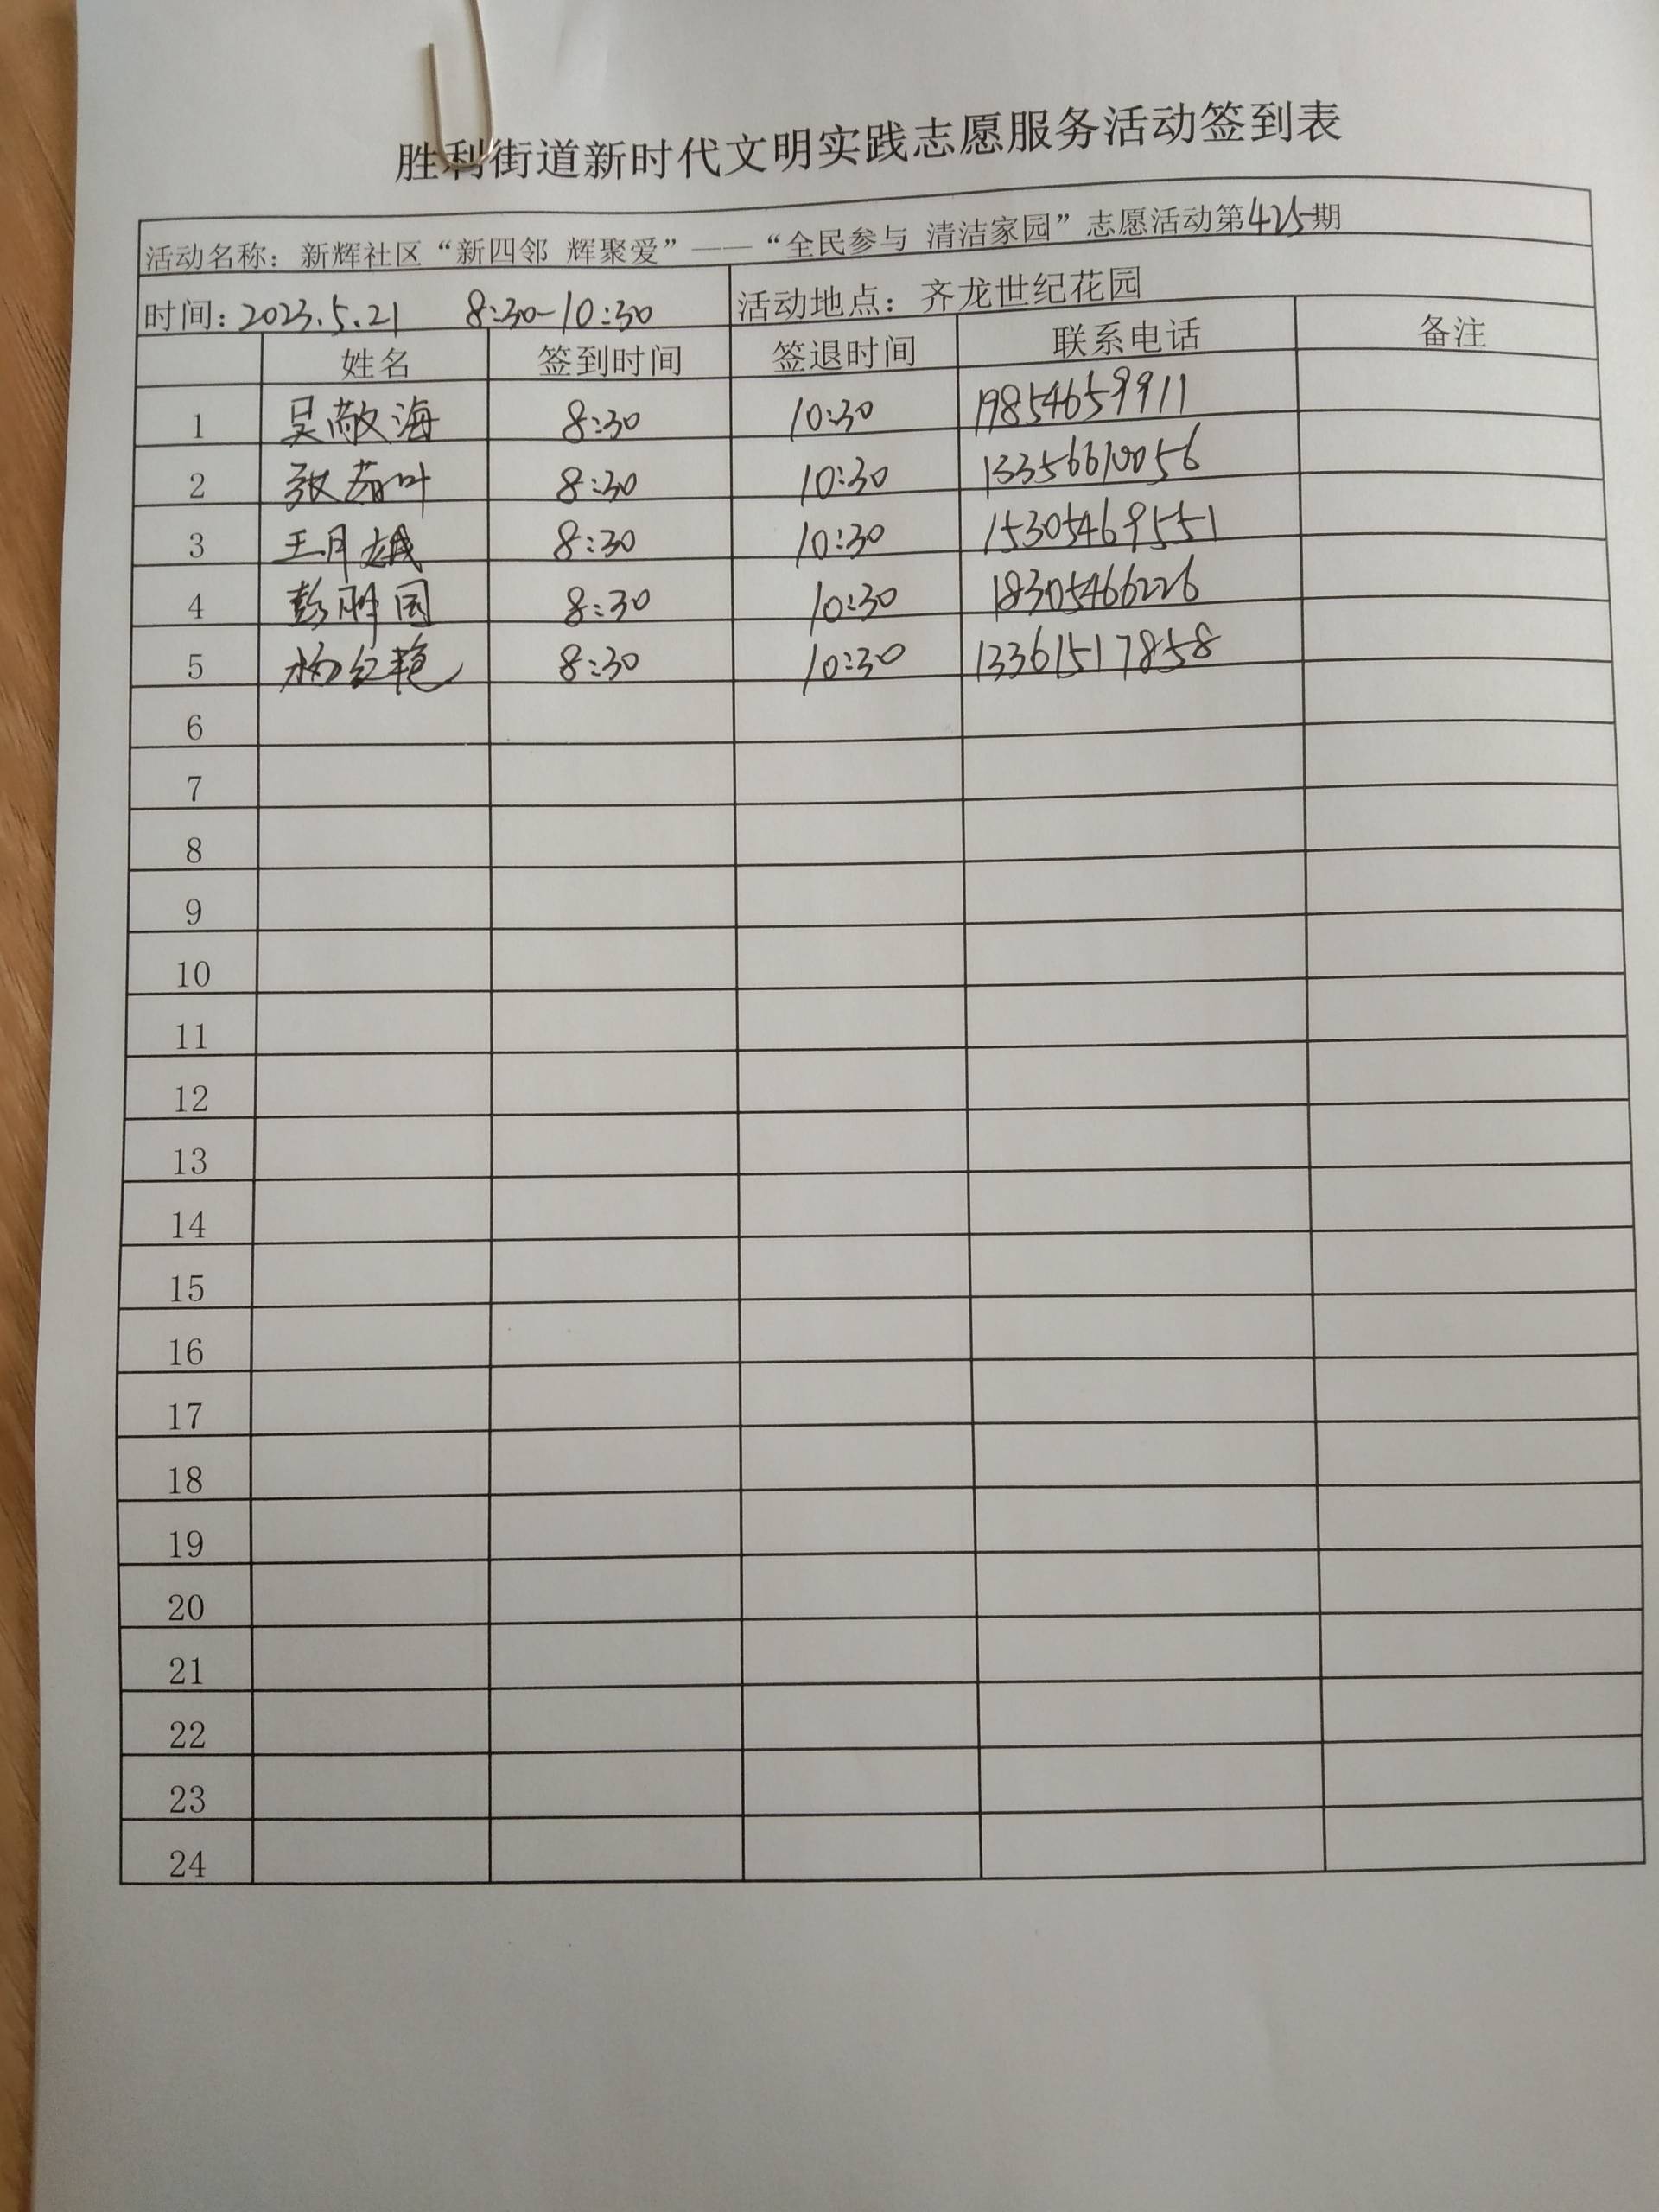 胜利街道新时代文明实践志愿服务活动签到表
活动名称：新辉社区“新四邻 辉聚爱”——“全民参与 清洁家园”志愿活动第425期
时间：2023.5.21 8:30-10:30 活动地点：齐龙世纪花园
姓名 签到时间 签退时间 联系电话 备注
1 吴敬海 8:30 10:30 19854659911
2 张春叶 8:30 10:30 13356610056
3 王月娥 8:30 10:30 15305469551
4 彭胜国 8:30 10:30 18305466226
5 杨红艳 8:30 10:30 13361517858
6
7
8
9
10
11
12
13
14
15
16
17
18
19
20
21
22
23
24